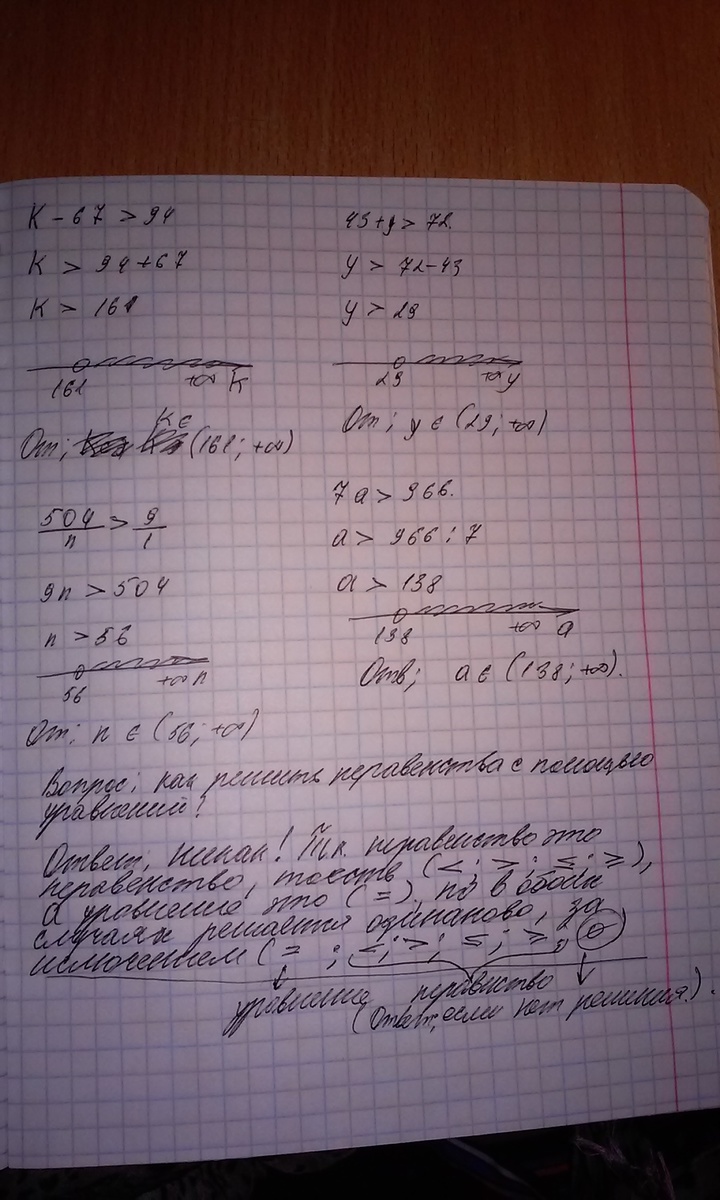 К - 67 > 94
К > 94+67
К > 161
161 +∞ К
От; К ∈ (161; +∞)
43+y > 72.
y > 72-43
y > 29
29 +∞ y
От; y ∈ (29; +∞)
504/n > 9/1
9n > 504
n > 56
56 +∞ n
От; n ∈ (56; +∞)
7a > 966.
a > 966 : 7
a > 138
138 +∞ a
Отв; a ∈ (138; +∞).
Вопрос; как решить неравенства с помощью
уравнений?
Ответ, никак! Т.к. неравенство это
неравенство, тоесть (< ; > ; ≤ ; ≥),
а уравнение это (=), но в обоих
случаях решается одинаково, за
исключением (= ; < ; > ; ≤ ; ≥ ;
уравнение неравенство
(Ответ, если нет решения.).